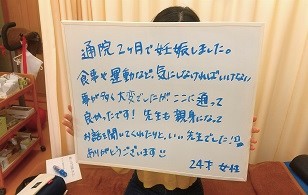 通院2ヶ月で妊娠しました。
食事や運動など、気にしなければいけない
事が多く大変でしたがここに通って
良かったです!先生も親身になって
お話を聞いてくれたりと、いい先生でした!!
ありがとうございます
24才 女性